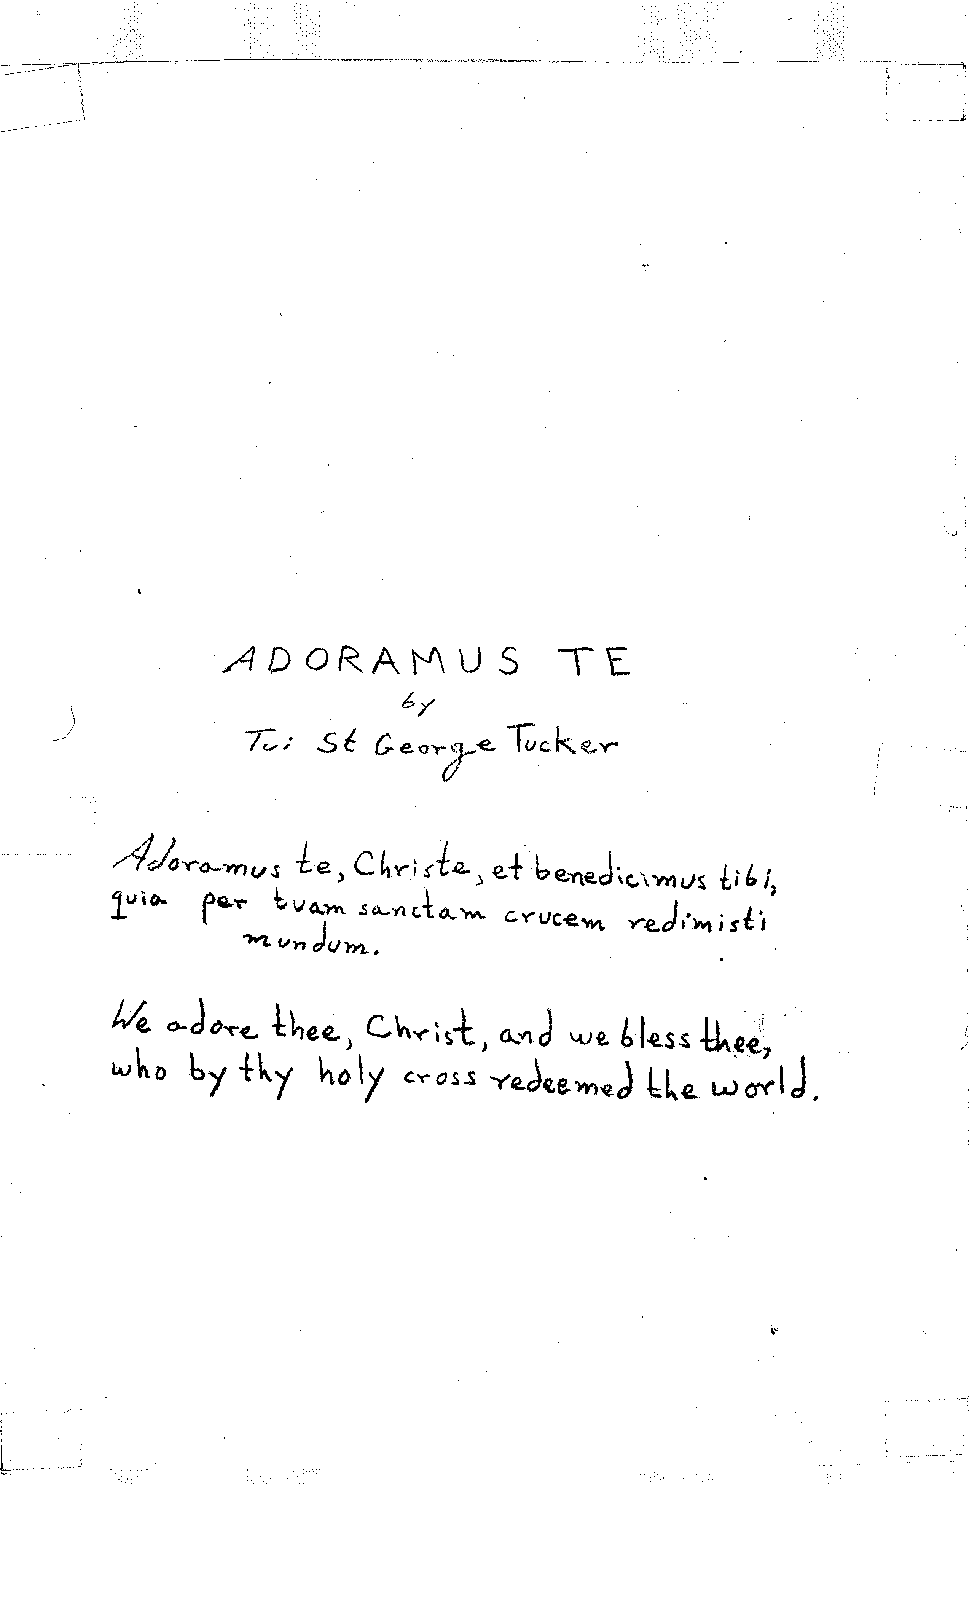 ADORAMUS TE
by
Tui St George Tucker
Adoramus te, Christe, et benedicimus tibi,
quia per tuam sanctam crucem redimisti
mundum.
We adore thee, Christ, and we bless thee,
who by thy holy cross redeemed the world.